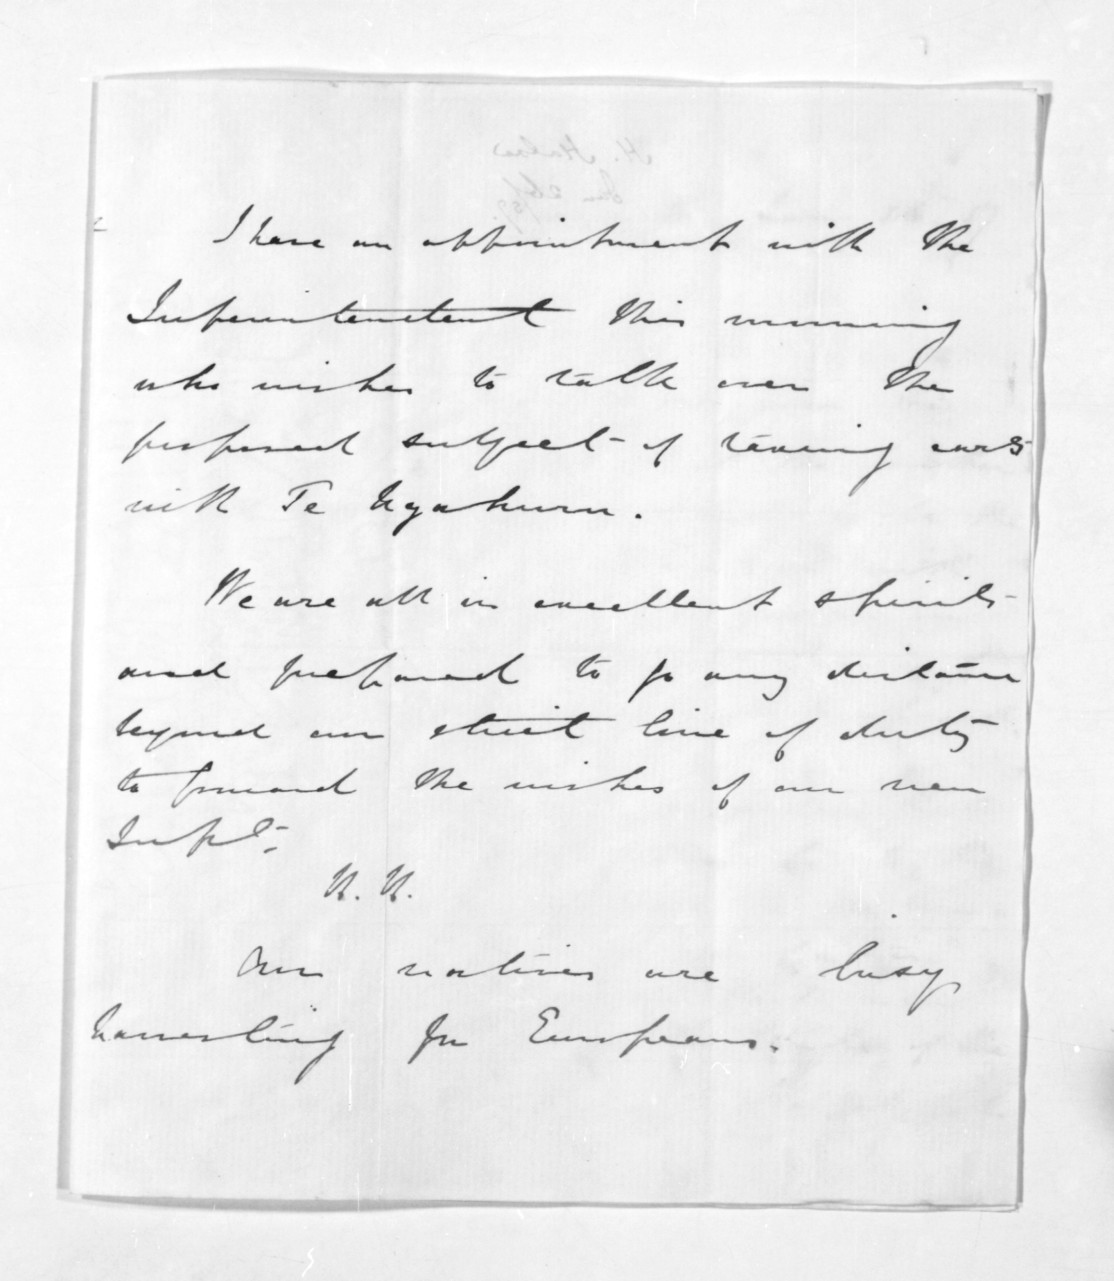 I have an appointment with the
Superintendent this morning
who wishes to talk over the
proposed subject of rearing cows
with Te Ngahuru.
We are all in excellent spirits
and prepared to go any distance
beyond our strict line of duty
to forward the wishes of our new
Supt.
H. H.
Our natives are busy
harvesting for Europeans.